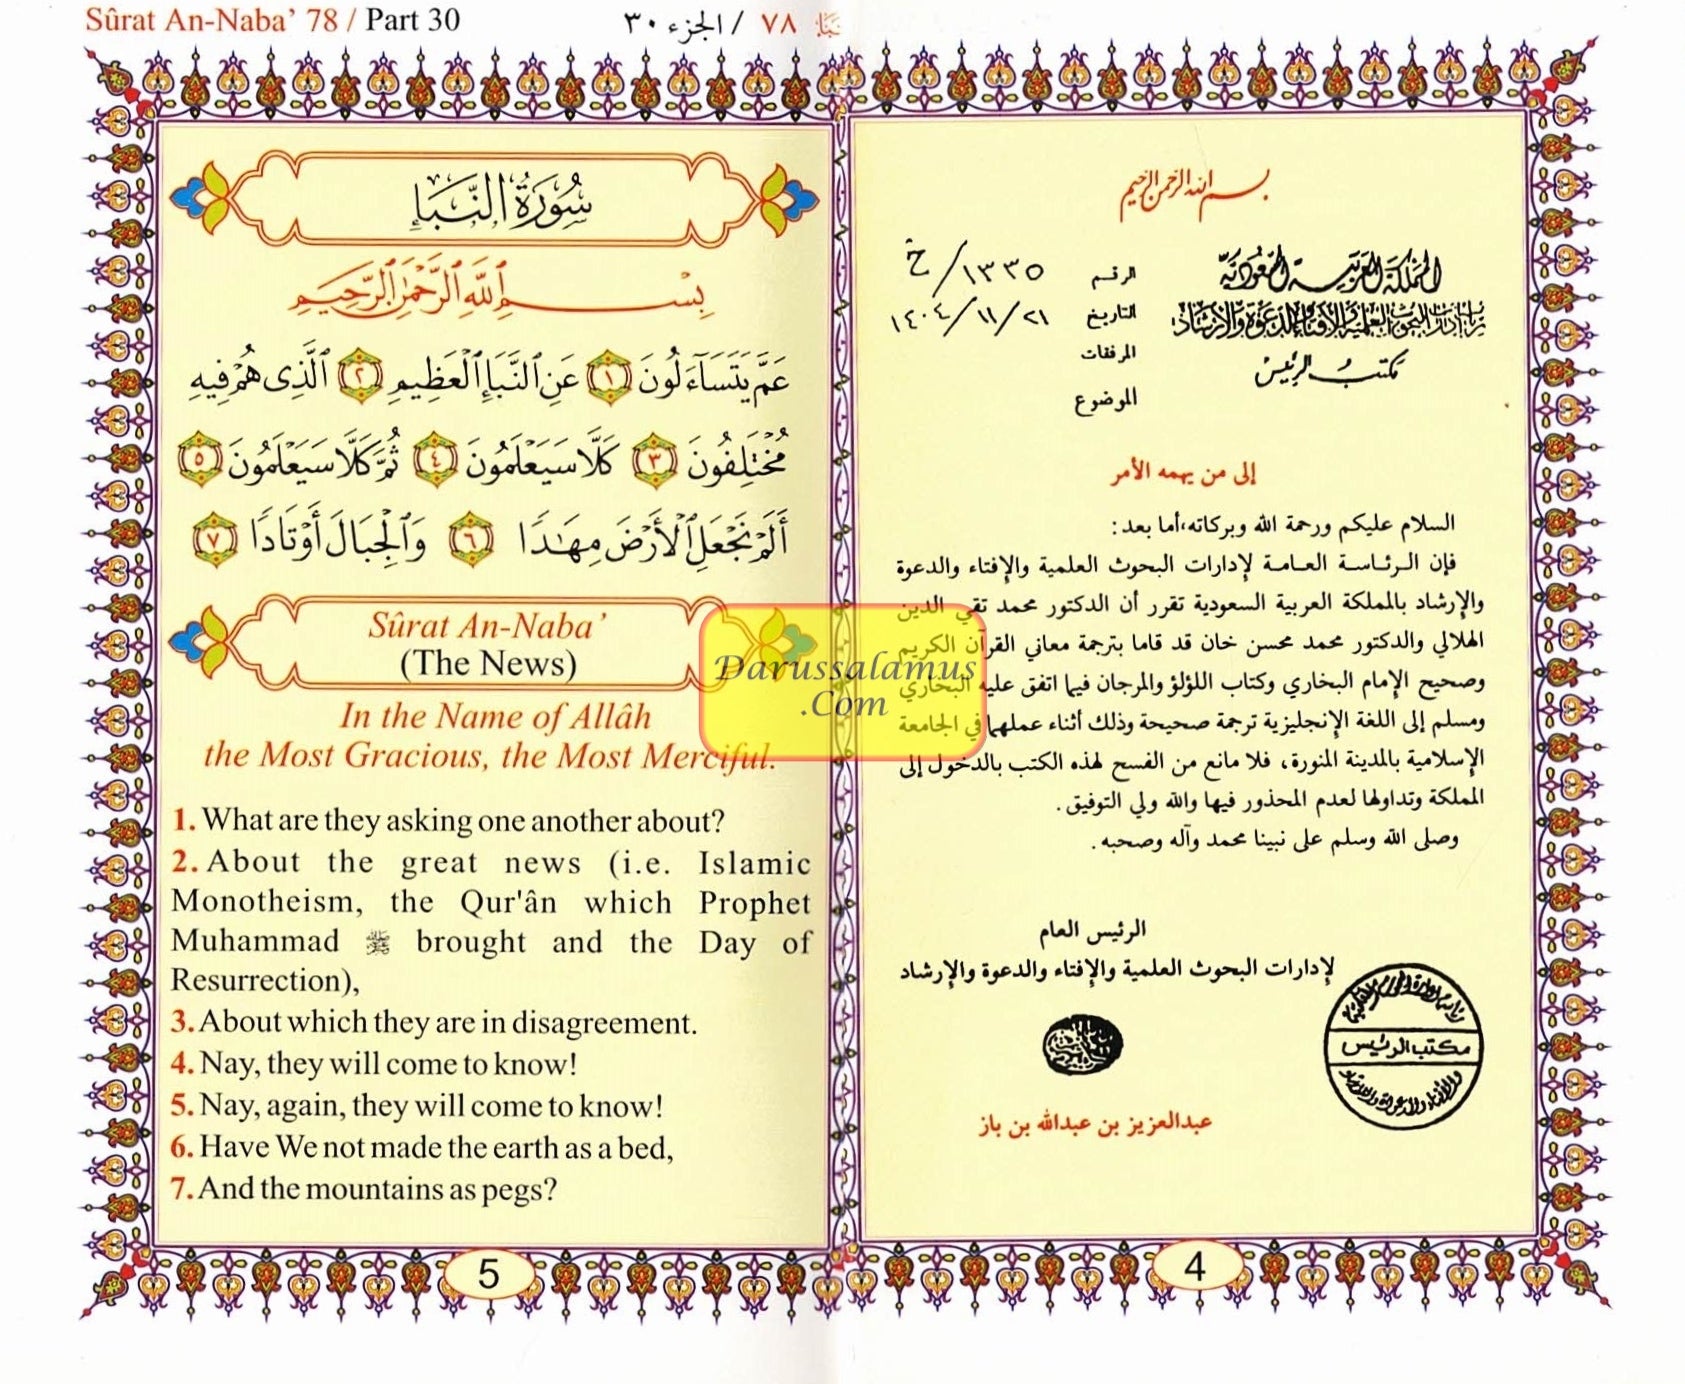 Sûrat An-Naba’ 78 / Part 30
نبإ ٧٨ / الجزء ٣٠
بسم الله الرحمن الرحيم
المملكة العربية السعودية
رئاسة إدارات البحوث العلمية والإفتاء والدعوة والإرشاد
مكتب الرئيس
الرقم ١٣٣٥/خ
التاريخ ٢١/١١/١٤٠٤
المرفقات
الموضوع
إلى من يهمه الأمر
السلام عليكم ورحمة الله وبركاته،أما بعد:
فإن الرئاسة العامة لإدارات البحوث العلمية والإفتاء والدعوة
والإرشاد بالمملكة العربية السعودية تقرر أن الدكتور محمد تقي الدين
الهلالي والدكتور محمد محسن خان قد قاما بترجمة معاني القرآن الكريم
وصحيح الإمام البخاري وكتاب اللؤلؤ والمرجان فيما اتفق عليه البخاري
ومسلم إلى اللغة الإنجليزية ترجمة صحيحة وذلك أثناء عملهما في الجامعة
الإسلامية بالمدينة المنورة، فلا مانع من الفسح لهذه الكتب بالدخول إلى
المملكة وتداولها لعدم المحذور فيها والله ولي التوفيق.
وصلى الله وسلم على نبينا محمد وآله وصحبه.
الرئيس العام
لإدارات البحوث العلمية والإفتاء والدعوة والإرشاد
مكتب الرئيس
عبدالعزيز بن عبدالله بن باز
4
سُورَةُ النَّبَإِ
بِسْمِ ٱللَّهِ ٱلرَّحْمَٰنِ ٱلرَّحِيمِ
عَمَّ يَتَسَآءَلُونَ ١ عَنِ ٱلنَّبَإِ ٱلْعَظِيمِ ٢ ٱلَّذِى هُمْ فِيهِ
مُخْتَلِفُونَ ٣ كَلَّا سَيَعْلَمُونَ ٤ ثُمَّ كَلَّا سَيَعْلَمُونَ ٥
أَلَمْ نَجْعَلِ ٱلْأَرْضَ مِهَٰدًا ٦ وَٱلْجِبَالَ أَوْتَادًا ٧
Sûrat An-Naba’
(The News)
In the Name of Allâh
the Most Gracious, the Most Merciful.
1. What are they asking one another about?
2. About the great news (i.e. Islamic
Monotheism, the Qur'ân which Prophet
Muhammad ﷺ brought and the Day of
Resurrection),
3. About which they are in disagreement.
4. Nay, they will come to know!
5. Nay, again, they will come to know!
6. Have We not made the earth as a bed,
7. And the mountains as pegs?
5
Darussalamus
.Com